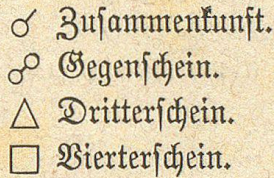 ☌ Zusammenkunft.
☍ Gegenschein.
△ Dritterschein.
□ Vierterschein.